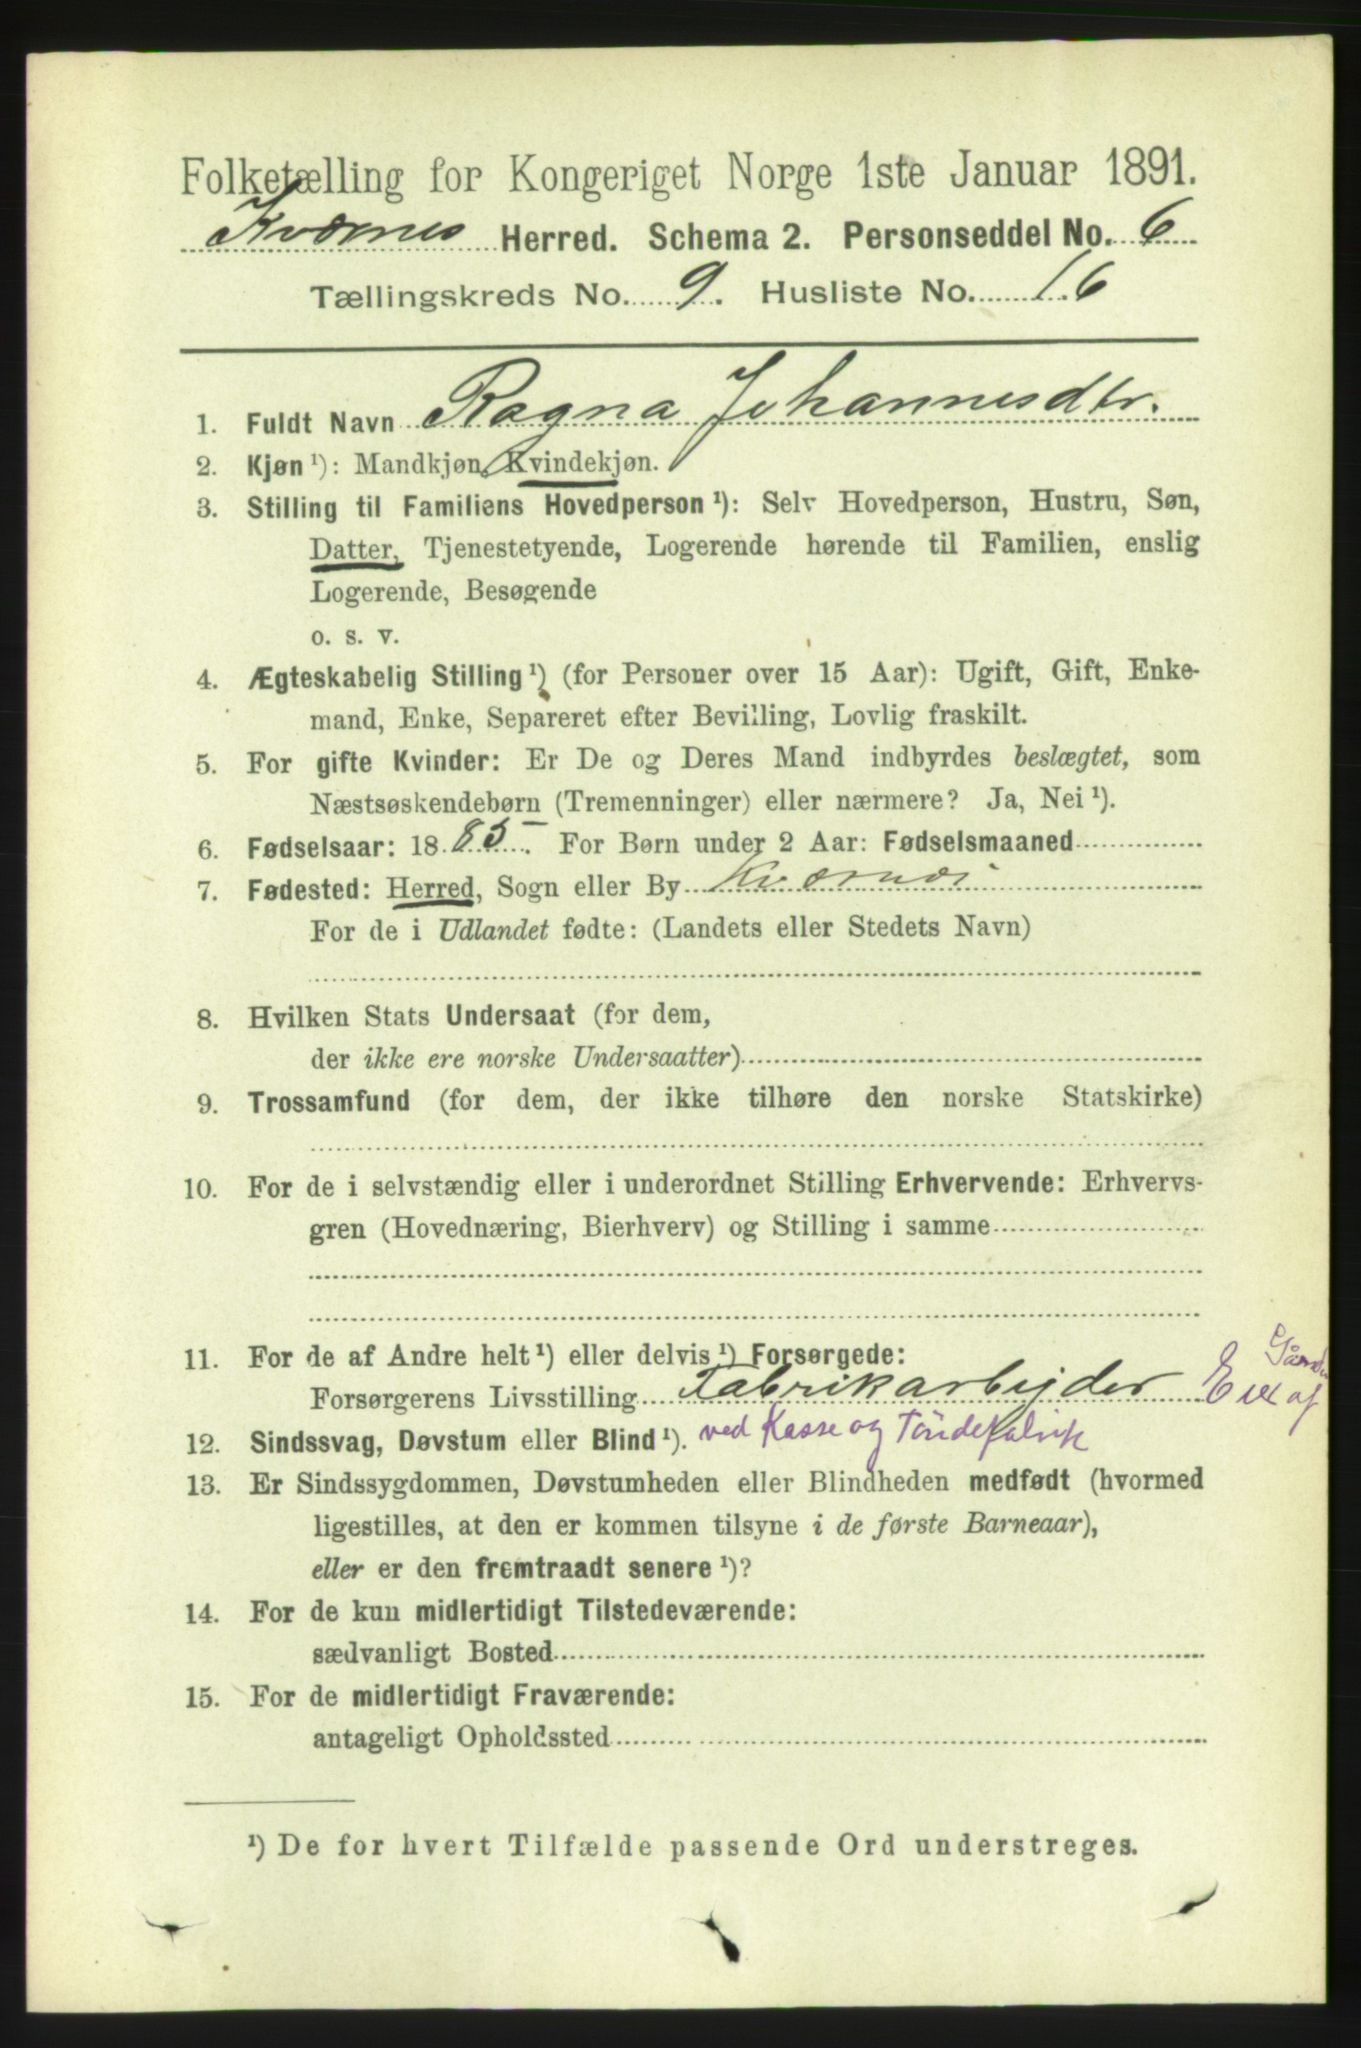 Folketælling for Kongeriget Norge 1ste Januar 1891.
Kværnes Herred. Schema 2. Personseddel No. 6
Tællingskreds No. 9. Husliste No. 16
1. Fuldt Navn Ragna Johannesdtr.
2. Kjøn ¹): Mandkjøn, Kvindekjøn.
3. Stilling til Familiens Hovedperson ¹): Selv Hovedperson, Hustru, Søn,
Datter, Tjenestetyende, Logerende hørende til Familien, enslig
Logerende, Besøgende
o. s. v.
4. Ægteskabelig Stilling ¹) (for Personer over 15 Aar): Ugift, Gift, Enke-
mand, Enke, Separeret efter Bevilling, Lovlig fraskilt.
5. For gifte Kvinder: Er De og Deres Mand indbyrdes beslægtet, som
Næstsøskendebørn (Tremenninger) eller nærmere? Ja, Nei ¹).
6. Fødselsaar: 1885. For Børn under 2 Aar: Fødselsmaaned
7. Fødested: Herred, Sogn eller By Kværnes
For de i Udlandet fødte: (Landets eller Stedets Navn)
8. Hvilken Stats Undersaat (for dem,
der ikke ere norske Undersaatter)
9. Trossamfund (for dem, der ikke tilhøre den norske Statskirke)
10. For de i selvstændig eller i underordnet Stilling Erhvervende: Erhvervs-
gren (Hovednæring, Bierhverv) og Stilling i samme
11. For de af Andre helt ¹) eller delvis ¹) Forsørgede:
Forsørgerens Livsstilling Fabrikarbejder Eier af
12. Sindssvag, Døvstum eller Blind ¹). ved Kasse og Tøndefabrik
13. Er Sindssygdommen, Døvstumheden eller Blindheden medfødt (hvormed
ligestilles, at den er kommen tilsyne i de første Barneaar),
eller er den fremtraadt senere ¹)?
14. For de kun midlertidigt Tilstedeværende:
sædvanligt Bosted
15. For de midlertidigt Fraværende:
antageligt Opholdssted
¹) De for hvert Tilfælde passende Ord understreges.